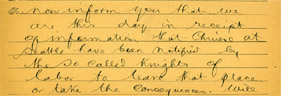 now inform you that we
are this day in receipt
of information that Chinese at
Seattle have been notified by
the so called Knights of
Labor to leave that place
or take the consequences. Will